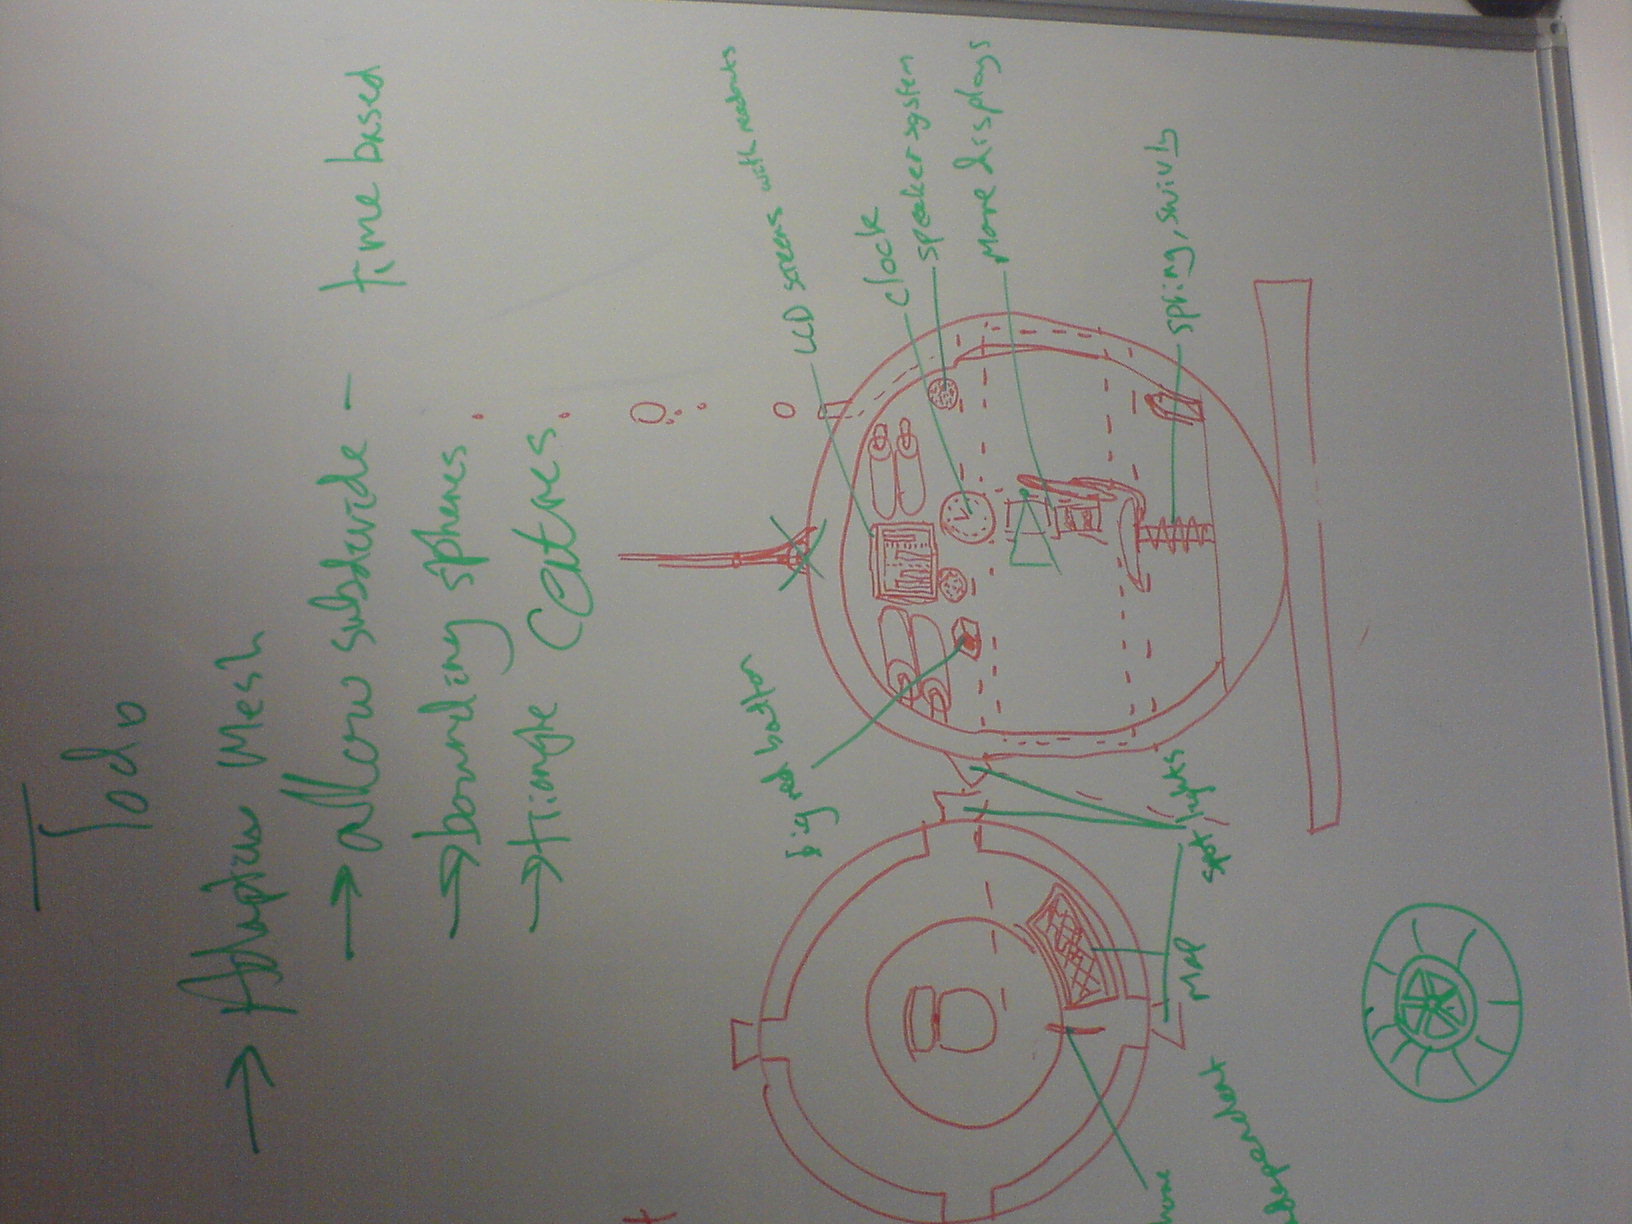 Todo
→ Adaptive Mesh
→ allow subdivide - time based
→ bounding spheres.
→ triangle Centres.
LCD screens with readouts
clock
speaker system
More displays
spring, swivly
big red button
spot lights
Map